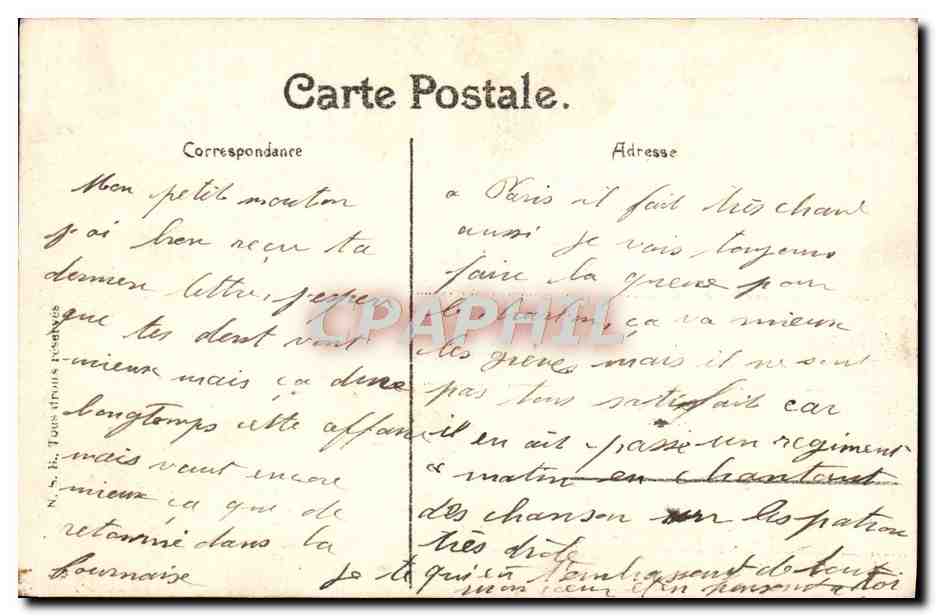 Carte Postale.
Correspondance
Mon petit mouton
j'ai bien reçu ta
derniere lettre, j'esper
que tes dent vont
mieux mais ça dure
longtemps cette affaire
mais vaut encore
mieux ça que de
retourné dans la
fournaise
Adresse
a Paris il fait très chaud
aussi je vais toujours
faire la queue pour
le charbon, ça va mieux
les greves mais il ne sont
pas tous satisfait car
il en ait passé un regiment
matin en chantant
des chanson sur les patron
très drôle
je te quitte en t'embrassant de tout
mon coeur et en pensant a toi
N. S. E. Tous droits réservés
CPAPHIL